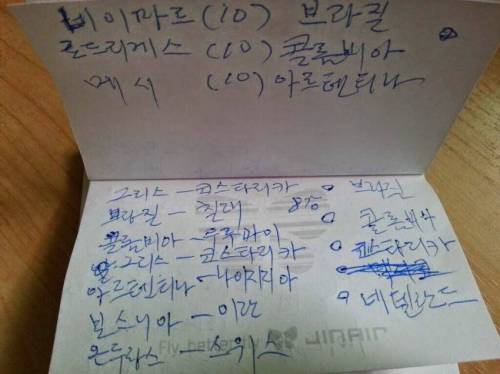 네이마르(10) 브라질
로드리게스(10) 콜롬비아
메시 (10) 아르텐티나
그리스 - 코스타리카
브라질 - 칠레 8강
콜롬비아 - 우루과이
그리스 - 코스타리카
아르텐티나 - 나이지리아
보스니아 - 이란
온두라스 - 스위스
브라질
콜롬비아
코스타리카
네델란드
Fly, better
JINAIR